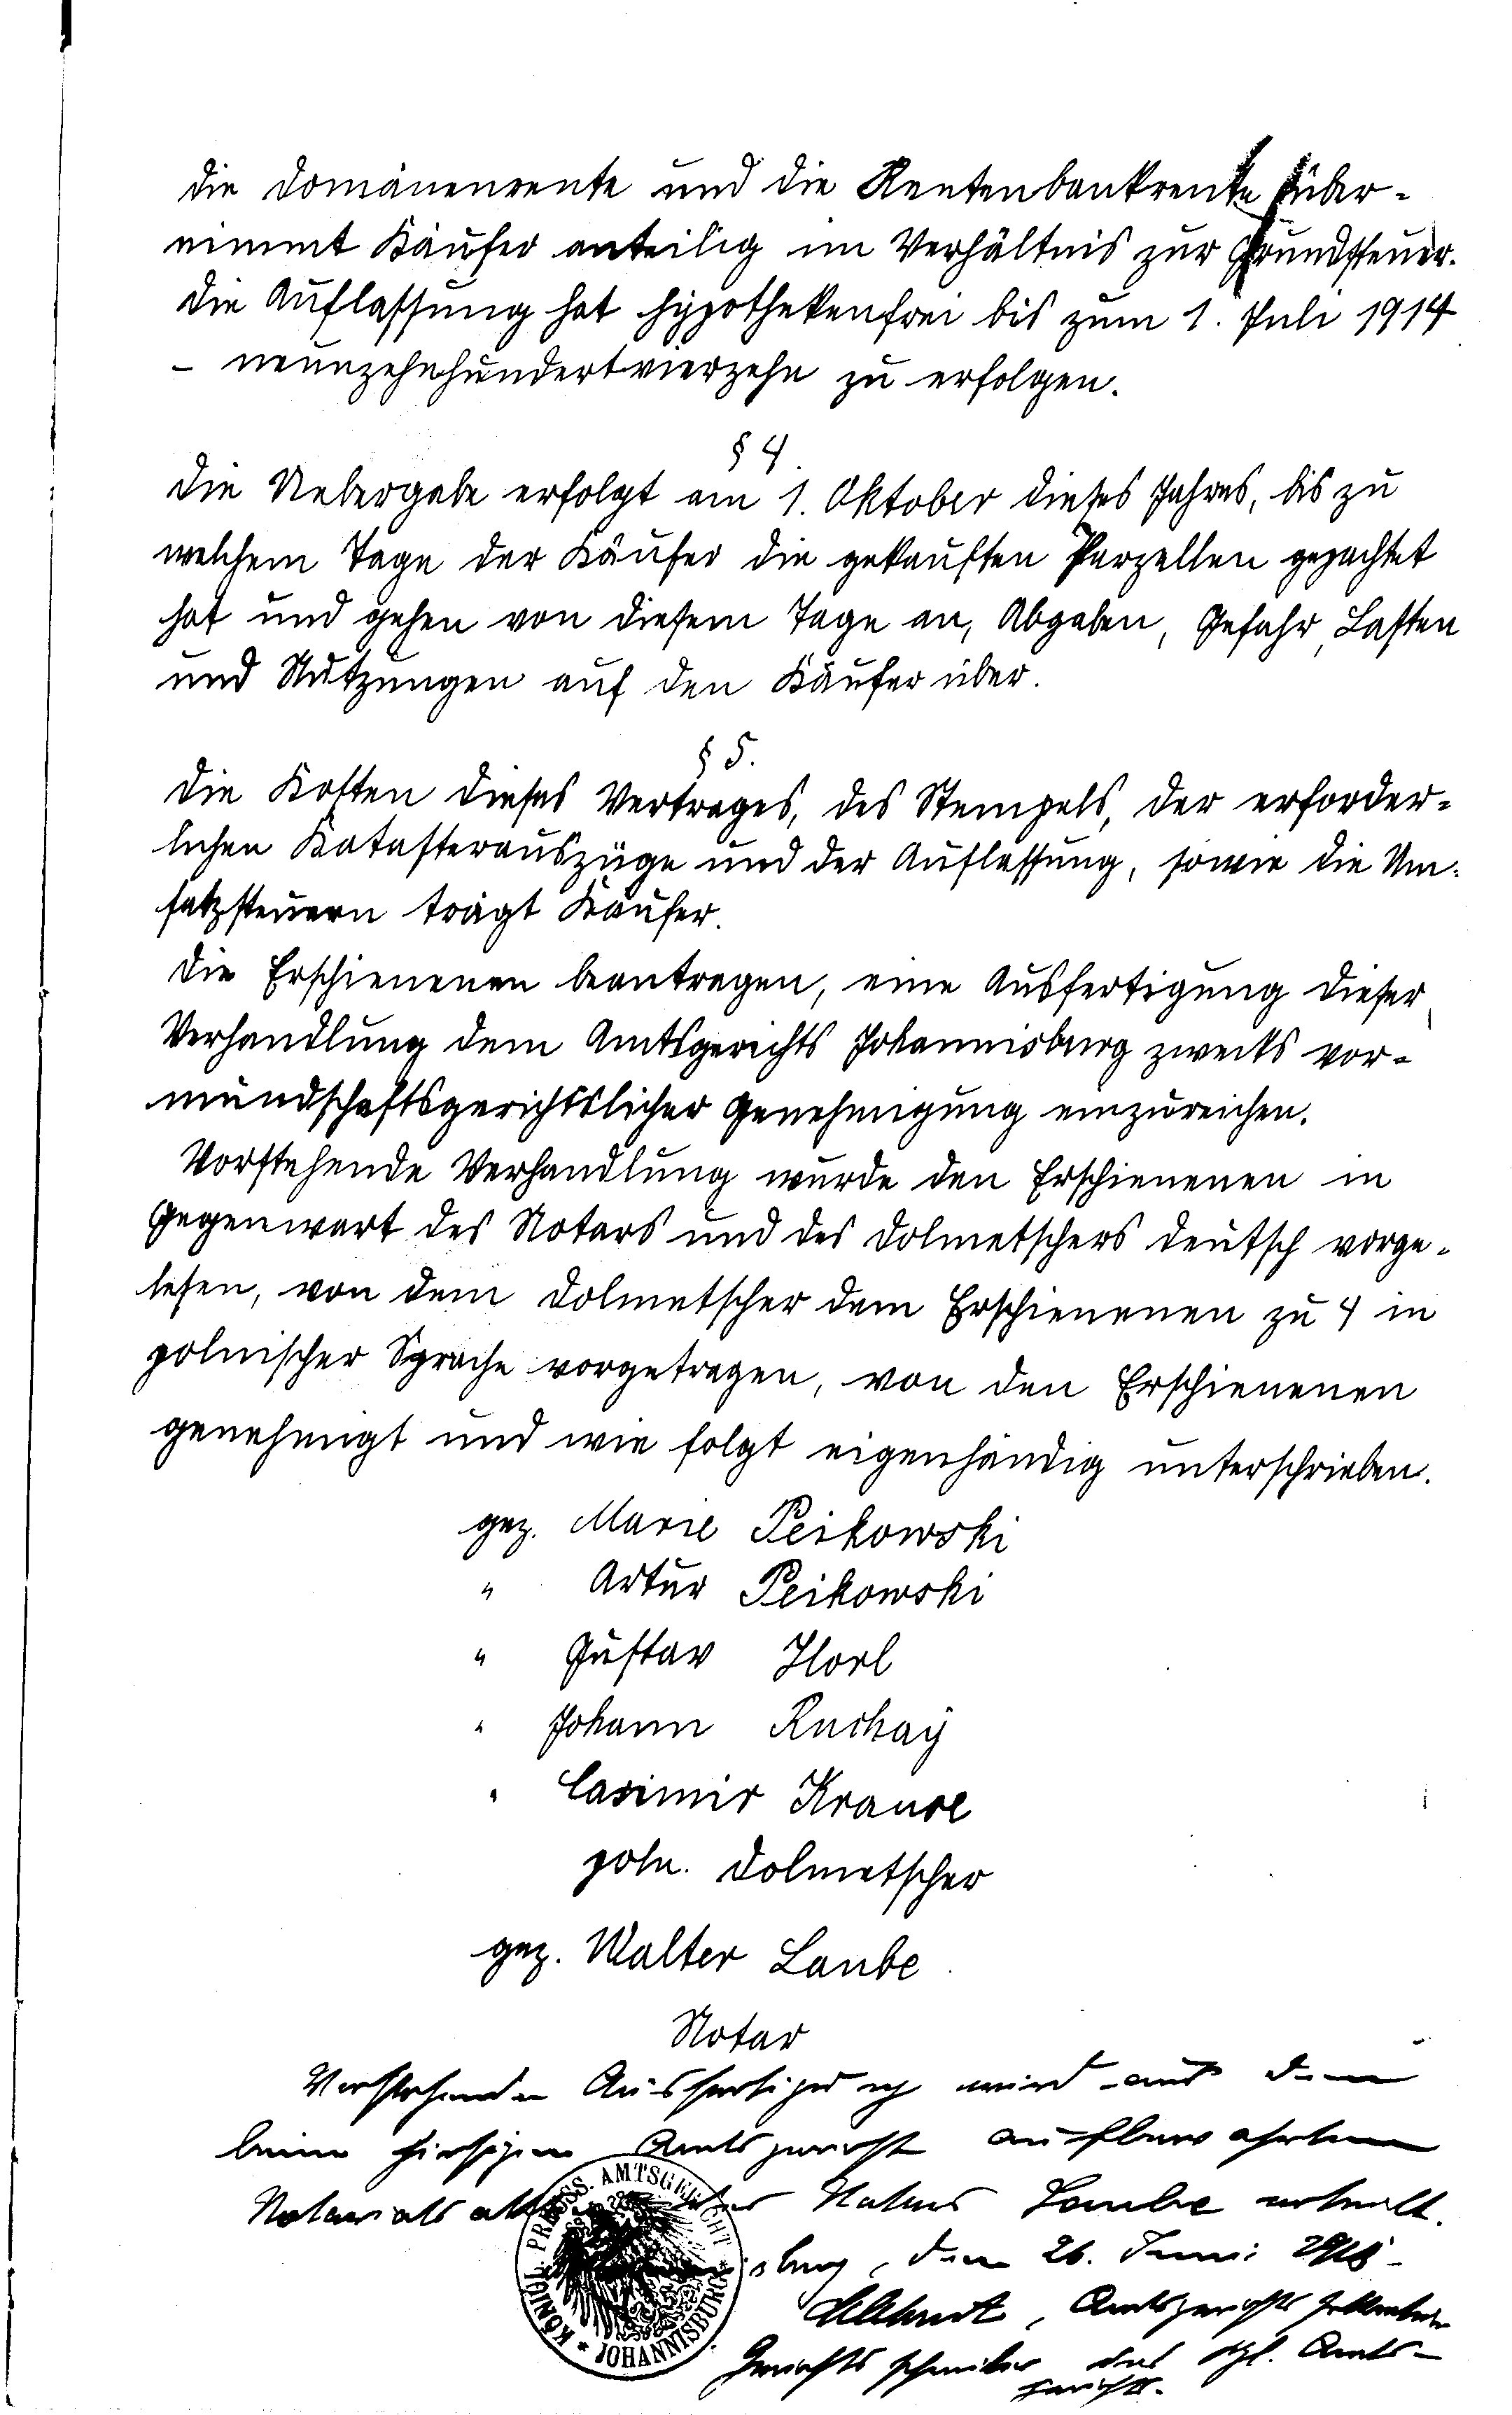 Die Domänenrente und die Rentenbankrente über-
nimmt Käufer anteilig im Verhältnis zur Grundsteuer.
Die Auflassung hat hypothekenfrei bis zum 1. Juli 1914
- neunzehnhundertvierzehn zu erfolgen.
§ 4.
Die Uebergabe erfolgt am 1. Oktober dieses Jahres, bis zu
welchem Tage der Käufer die gekauften Parzellen gepachtet
hat und gehen von diesem Tage an, Abgaben, Gefahr, Lasten
und Nutzungen auf den Käufer über.
§ 5.
Die Kosten dieses Vertrages, des Stempels, der erforder-
lichen Katasterauszüge und der Auflassung, sowie die Um-
satzsteuern trägt Käufer.
Die Erschienenen beantragen, eine Ausfertigung dieser
Verhandlung dem Amtsgerichts Johannisburg zwecks vor-
mundschaftsgerichtslicher Genehmigung einzureichen.
Vorstehende Verhandlung wurde den Erschienenen in
Gegenwart des Notars und des Dolmetschers deutsch vorge-
lesen, von dem Dolmetscher dem Erschienenen zu 4 in
polnischer Sprache vorgetragen, von den Erschienenen
genehmigt und wie folgt eigenhändig unterschrieben.
gez. Marie Peikowski
" Artur Peikowski
" Gustav Jlorl
" Johann Ruchay
" Casimir Krause
poln. Dolmetscher
gez. Walter Laube
Notar
Vorstehende Ausfertigung wird aus dem
beim hiesigen Amtsgericht aufbewahrten
Notariats des Notars Laube erteilt.
den 26. Juni
Amtsgerichtssekretär
Gerichtsschreiber des Kgl. Amts-
gerichts.
KÖNIGL. PREUSS. AMTSGERICHT * JOHANNISBURG *